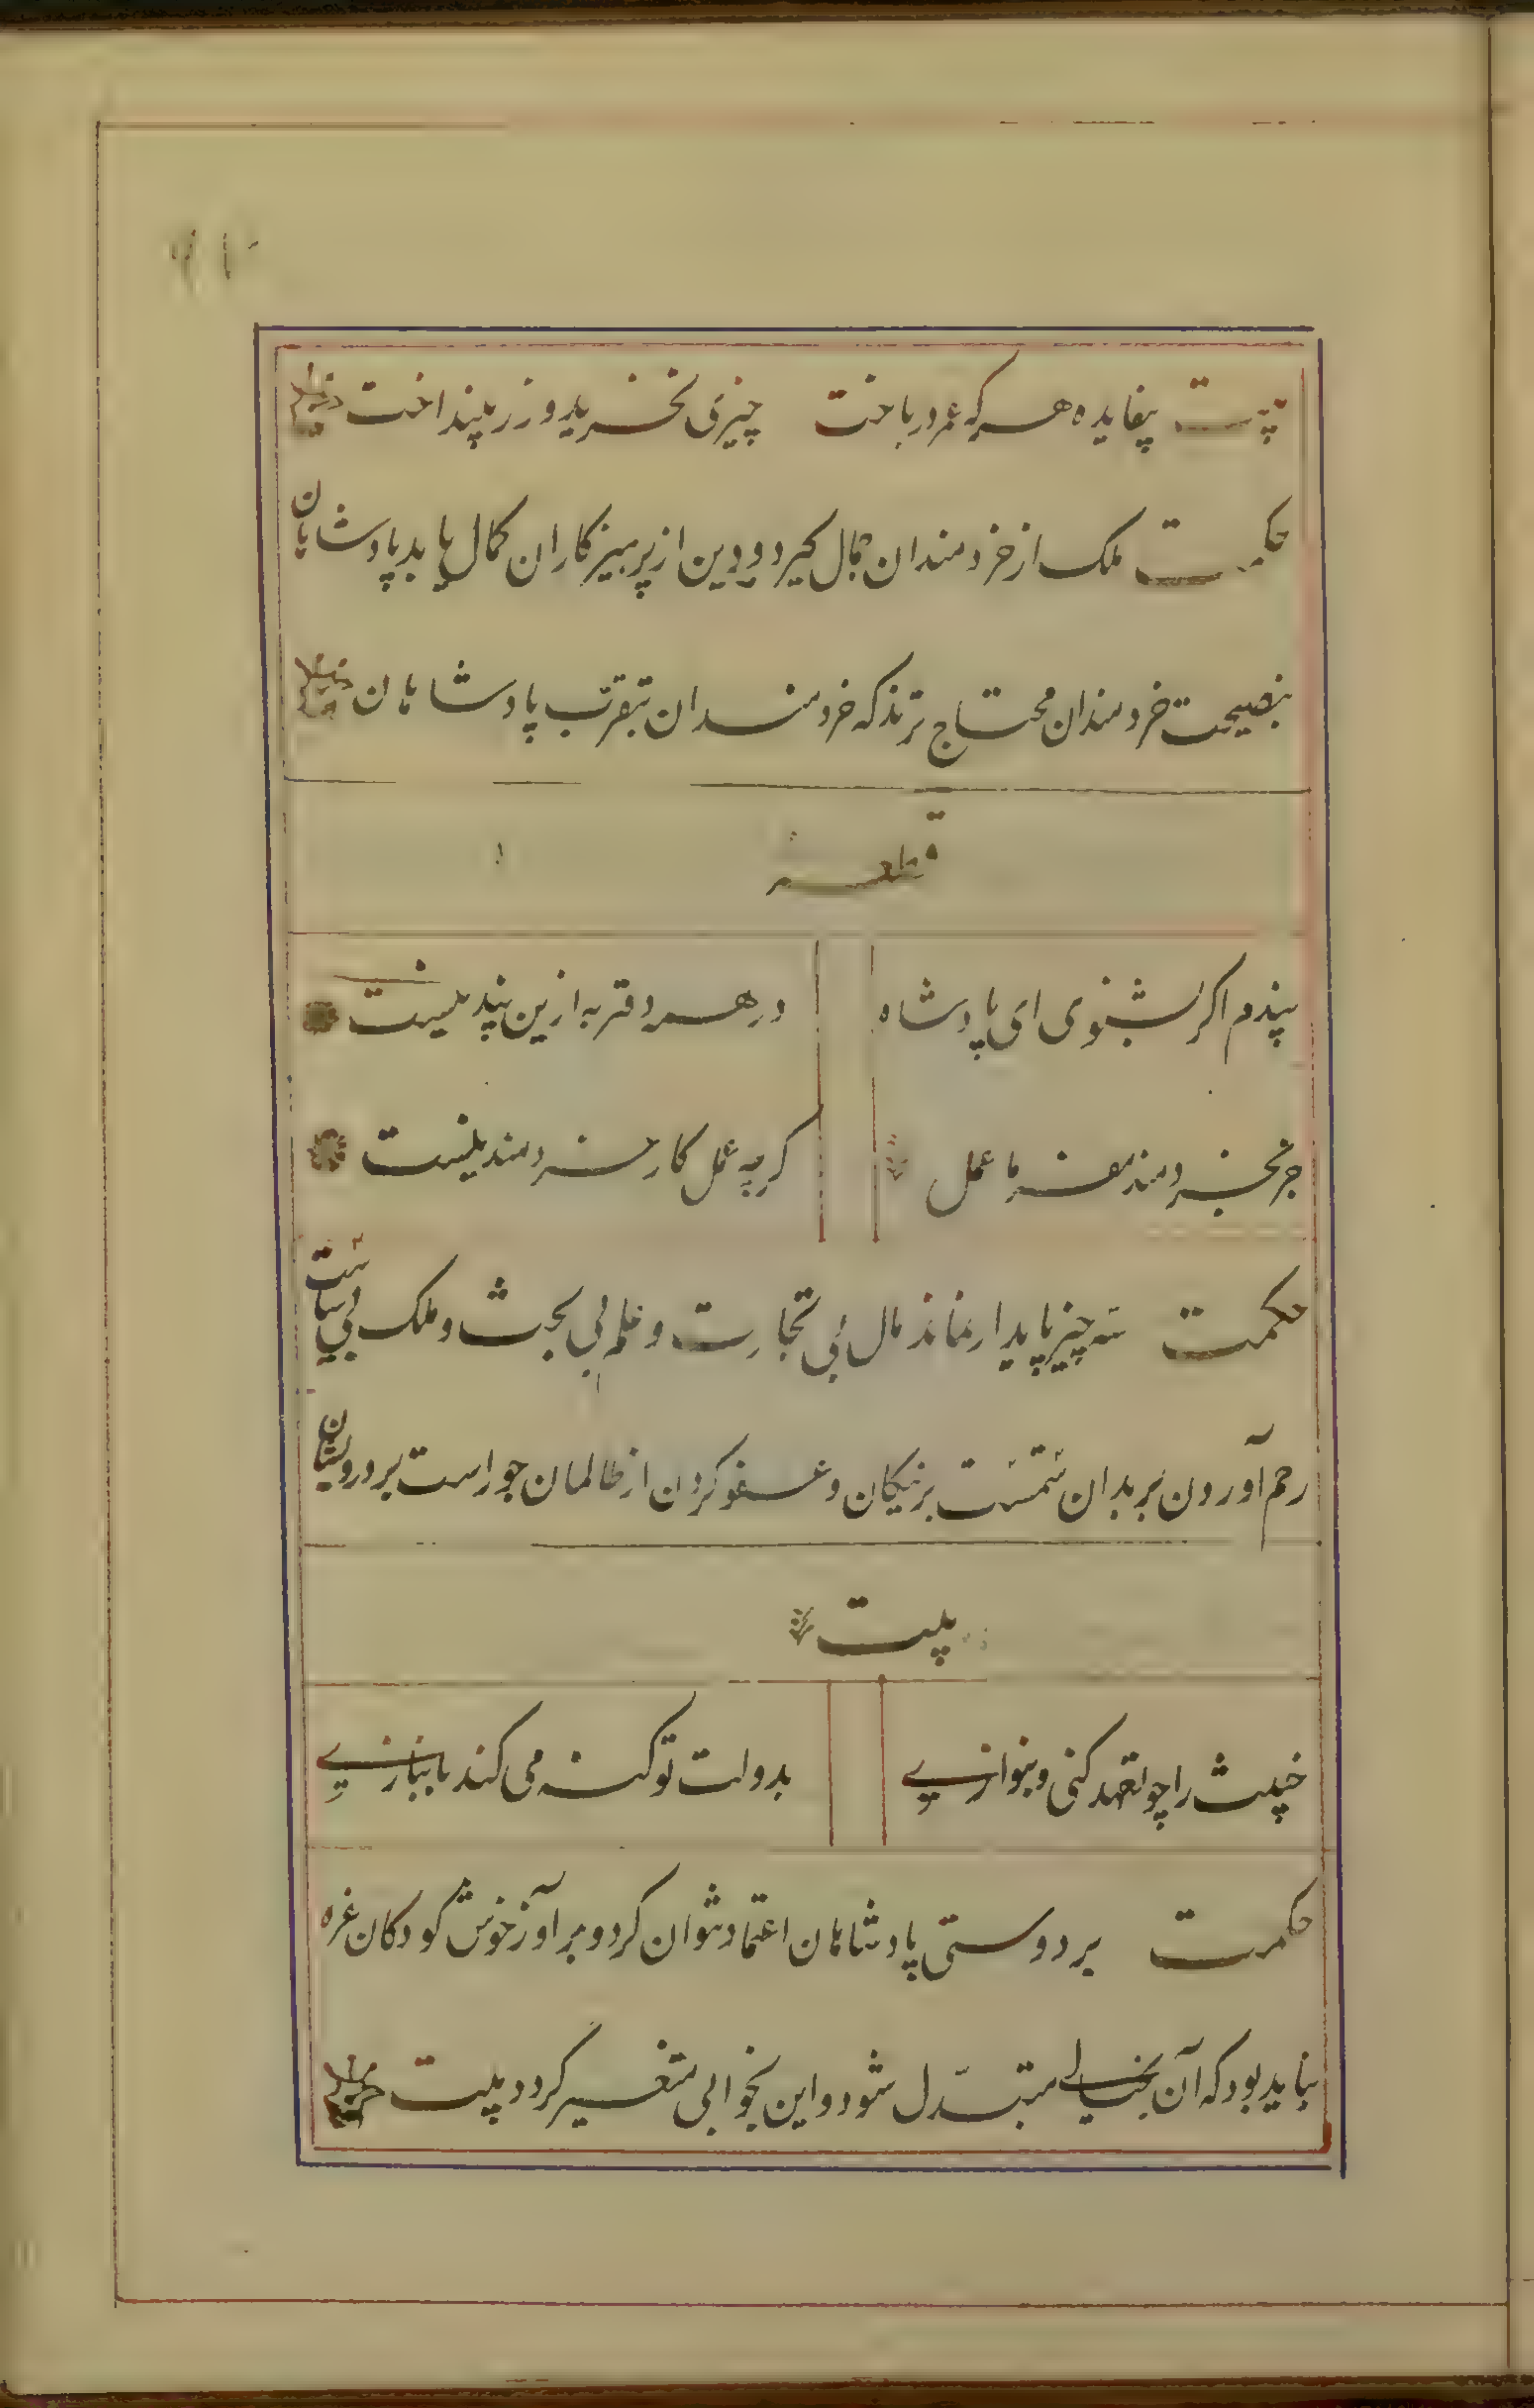 بیت بیفایده هر که عمر در باخت چیزی نخرید و زر بینداخت
حکمت ملک از خردمندان جمال گیرد و دین از پرهیزکاران کمال یابد پادشاهان
بنصیحت خردمندان محتاج ترند که خردمندان بتقرب پادشاهان
قطعه
پندم اگر بشنوی ای پادشاه در هر دفتر به ازین پند نیست
جز بخردمند مفرما عمل گرچه عمل کار خردمند نیست
حکمت سه چیز پایدار نماند مال بی تجارت و علم بی بحث و ملک بی سیاست
رحم آوردن بر بدان ستمست بر نیکان و عفو کردن از ظالمان جور است بر درویشان
بیت
خبیث را چو تعهد کنی و بنوازی بدولت تو گنه می کند بانبازی
حکمت بر دوستی پادشاهان اعتماد نتوان کرد و بر آواز خوش کودکان غره
نباید بود که آن بخیالی متبدل شود و این بخوابی متغیر گردد بیت